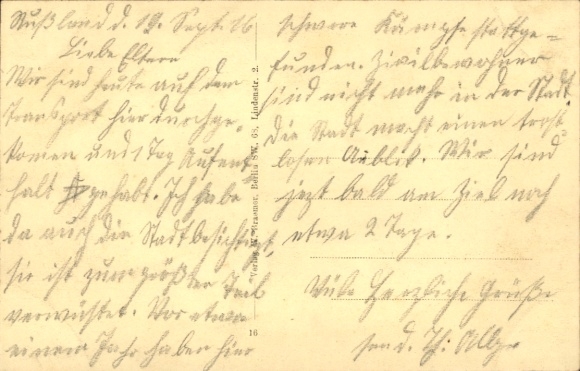 Rußland d. 19. Sept. 16
Liebe Eltern
Wir sind heute auf dem
Transport hier durchge-
komen und 1 Tag Aufent
halt gehabt. Ich habe
da auch die Stadt besichtigt,
sie ist zum größten Teil
verwüstet. Vor etwa
einem Jahr haben hier
schwere Kämpfe stattge=
funden. Zivilbewohner
sind nicht mehr in der Stadt.
Die Stadt macht einen trost=
losen Anblick. Wir sind
jezt bald am Ziel noch
etwa 2 Tage.
Viele Herzliche Grüße
send. Th.
Verlag Berlin SW. 68, Lindenstr. 2.
16